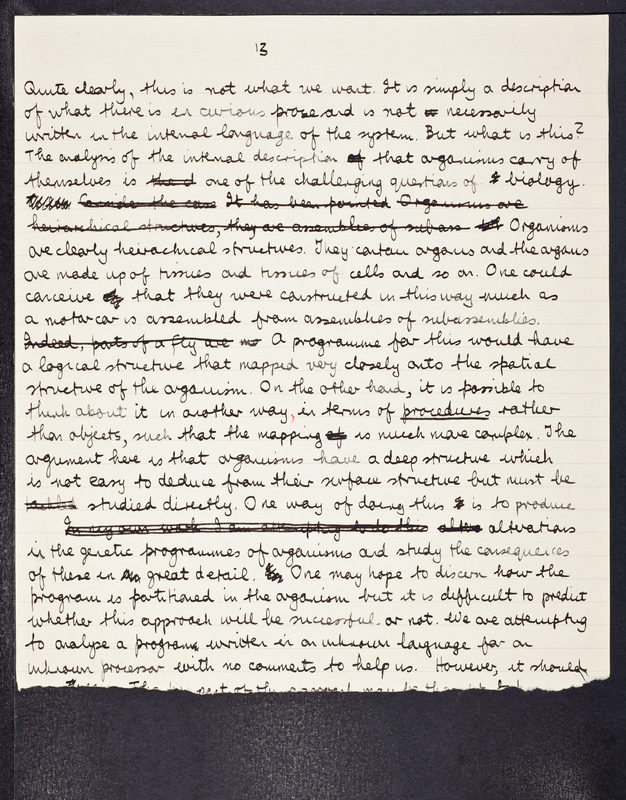 13
Quite clearly, this is not what we want. It is simply a description
of what there is in curious prose and is not necessarily
written in the internal language of the system. But what is this?
The analysis of the internal description of that organisms carry of
themselves is one of the challenging questions of biology.
Consider the case It has been pointed Organisms are
heirarchical structures, they are assemblies of subass Organisms
are clearly heirachical structures. They contain organs and the organs
are made up of tissues and tissues of cells and so on. One could
conceive that they were constructed in this way much as
a motor car is assembled from assemblies of subassemblies.
Indeed, parts of a fly are no A programme for this would have
a logical structure that mapped very closely onto the spatial
structure of the organism. On the other hand, it is possible to
think about it in another way, in terms of procedures rather
than objects, such that the mapping of is much more complex. The
argument here is that organisms have a deep structure which
is not easy to deduce from their surface structure but must be
studied directly. One way of doing this is to produce
In my own work I am attempting to do this alterations
in the genetic programmes of organisms and study the consequences
of these in great detail. One may hope to discern how the
program is partitioned in the organism but it is difficult to predict
whether this approach will be successful or not. We are attempting
to analyse a program written in an unknown language for an
unknown processor with no comments to help us. However, it should